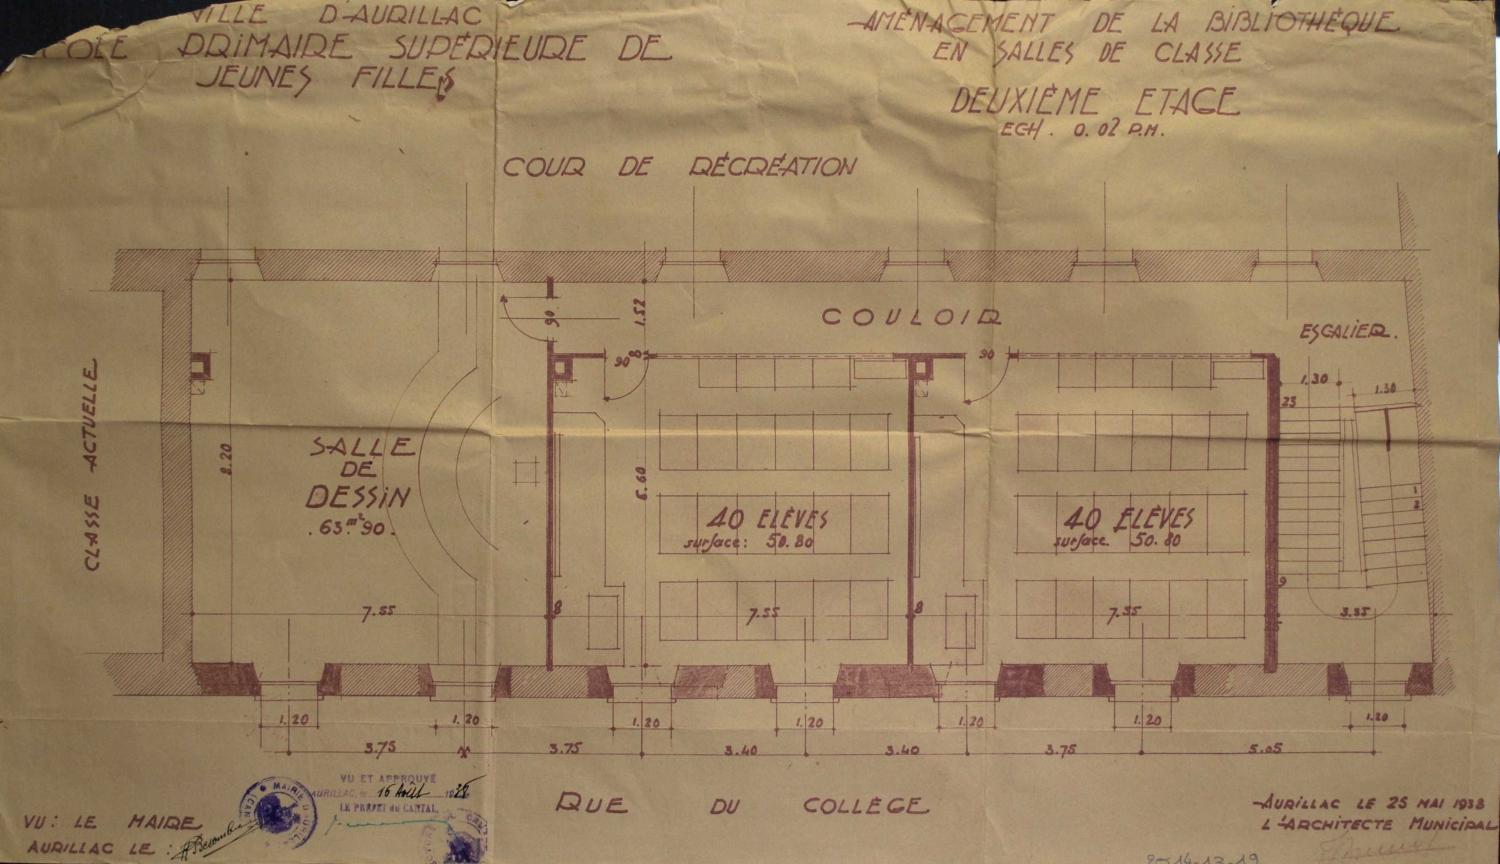 VILLE D'AURILLAC
ECOLE PRIMAIRE SUPÉRIEURE DE
JEUNES FILLES
AMÉNAGEMENT DE LA BIBLIOTHÈQUE
EN SALLES DE CLASSE
DEUXIÈME ETAGE
ECH. 0.02 P.M.
COUR DE RÉCRÉATION
COULOIR
ESCALIER.
90
1.52
90
8
90
1.30
1.30
23
CLASSE ACTUELLE
8.20
SALLE
DE
DESSIN
.63m²90.
6.60
40 ELÈVES
surface: 50.80
40 ELÈVES
surface. 50.80
1
2
7.55
8
7.55
8
7.35
9
3.85
1.20
1.20
1.20
1.20
1.20
1.20
1.20
3.75
3.75
3.40
3.40
3.75
5.05
RUE DU COLLÈGE
VU: LE MAIRE
AURILLAC LE :
MAIRIE D'AURILLAC
VU ET APPROUVÉ
AURILLAC, le 16 Août 1938
LE PRÉFET du CANTAL,
AURILLAC LE 25 MAI 1938
L'ARCHITECTE MUNICIPAL